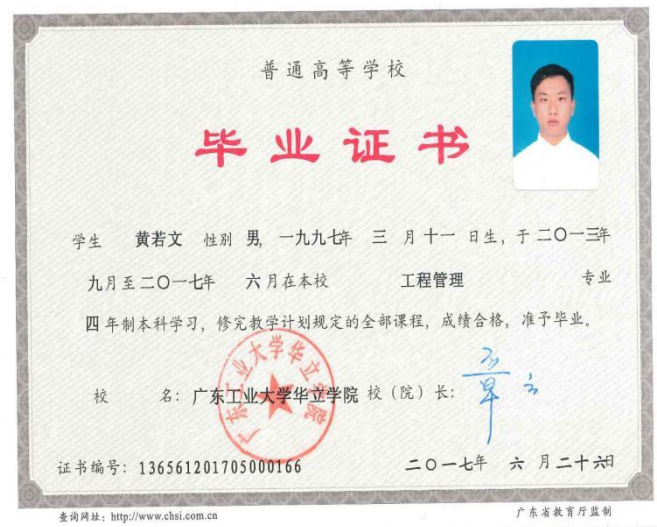 普通高等学校
毕业证书
学生 黄若文 性别 男, 一九九七年 三 月 十一 日生, 于 二〇一三年
九月至二〇一七年 六月在本校 工程管理 专业
四年制本科学习, 修完教学计划规定的全部课程, 成绩合格, 准予毕业。
校 名: 广东工业大学华立学院 校(院)长:
广东工业大学华立学院
证书编号: 136561201705000166 二〇一七年 六 月二十六日
查询网址: http://www.chsi.com.cn 广东省教育厅监制